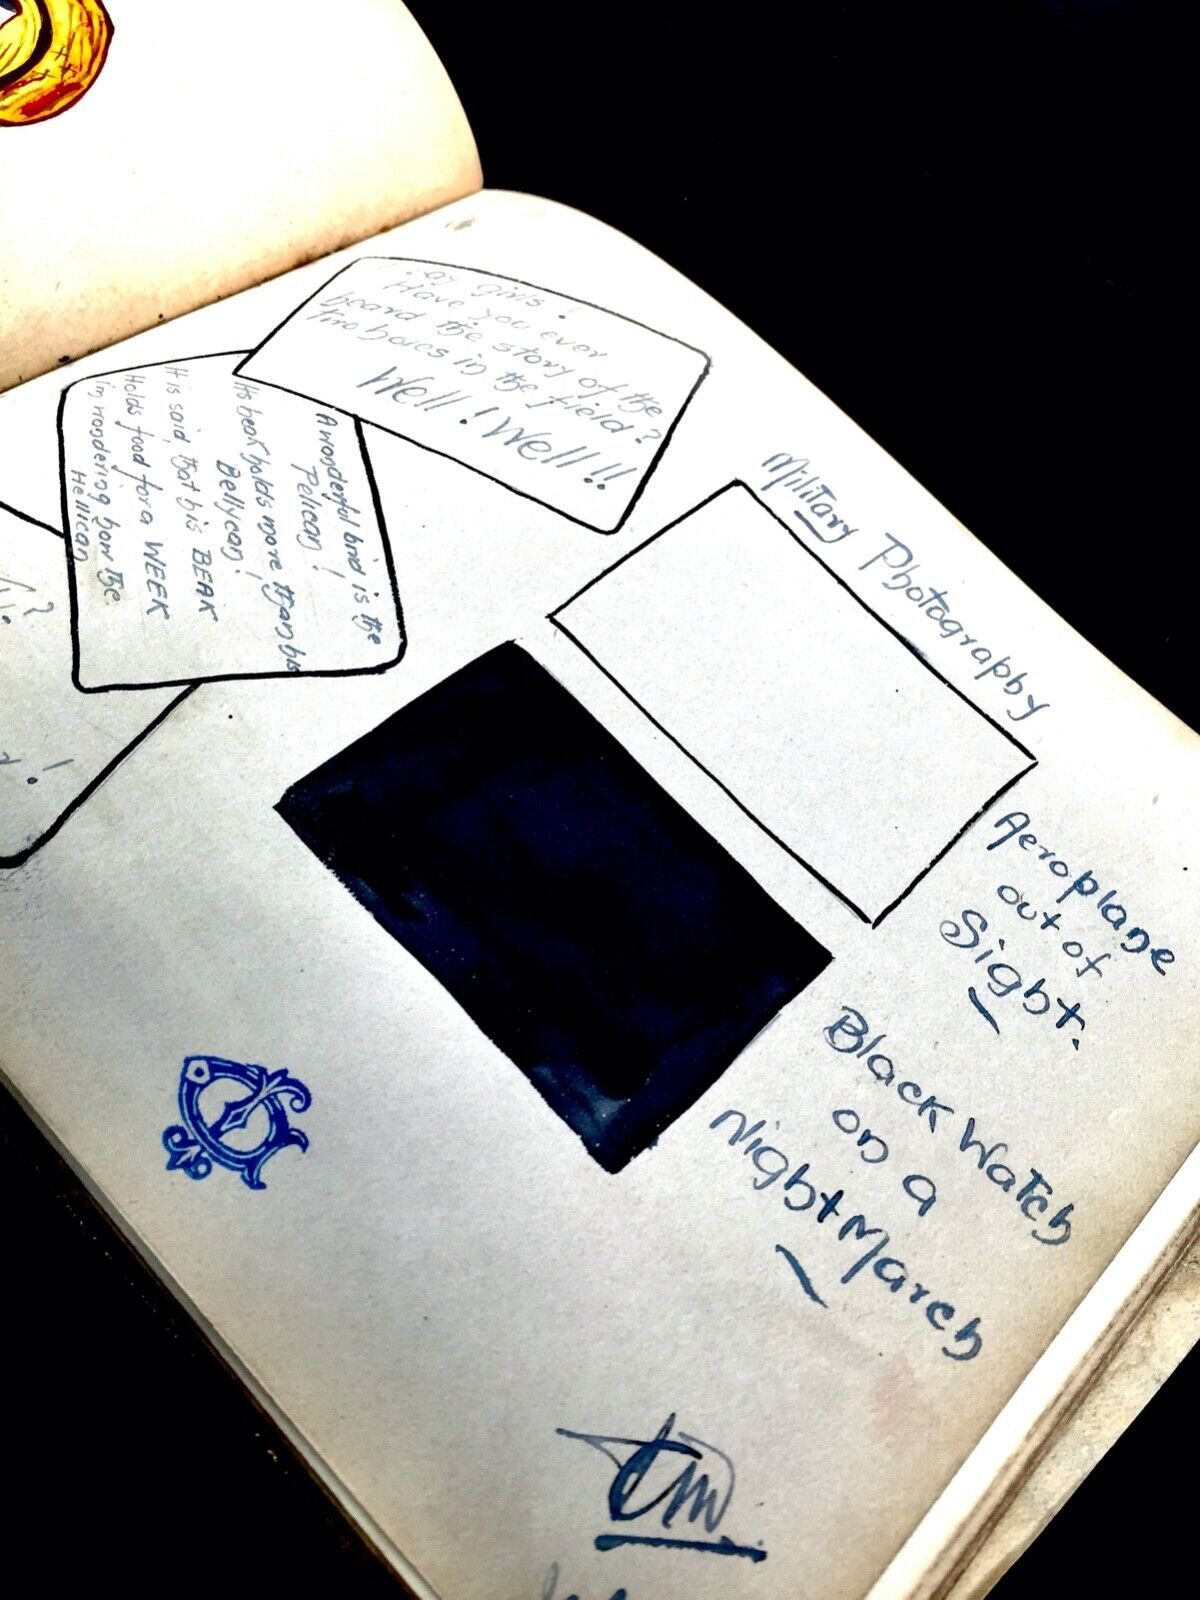 ay girls!
Have you ever
heard the story of the
two holes in the field?
Well! Well!!
A wonderful bird is the
Pelican!
Its beak holds more than his
Bellycan!
It is said, that his BEAK
Holds food for a WEEK
I'm wondering how the
Hellican
Military Photography
Aeroplane
out of
Sight.
Black Watch
on a
Night March